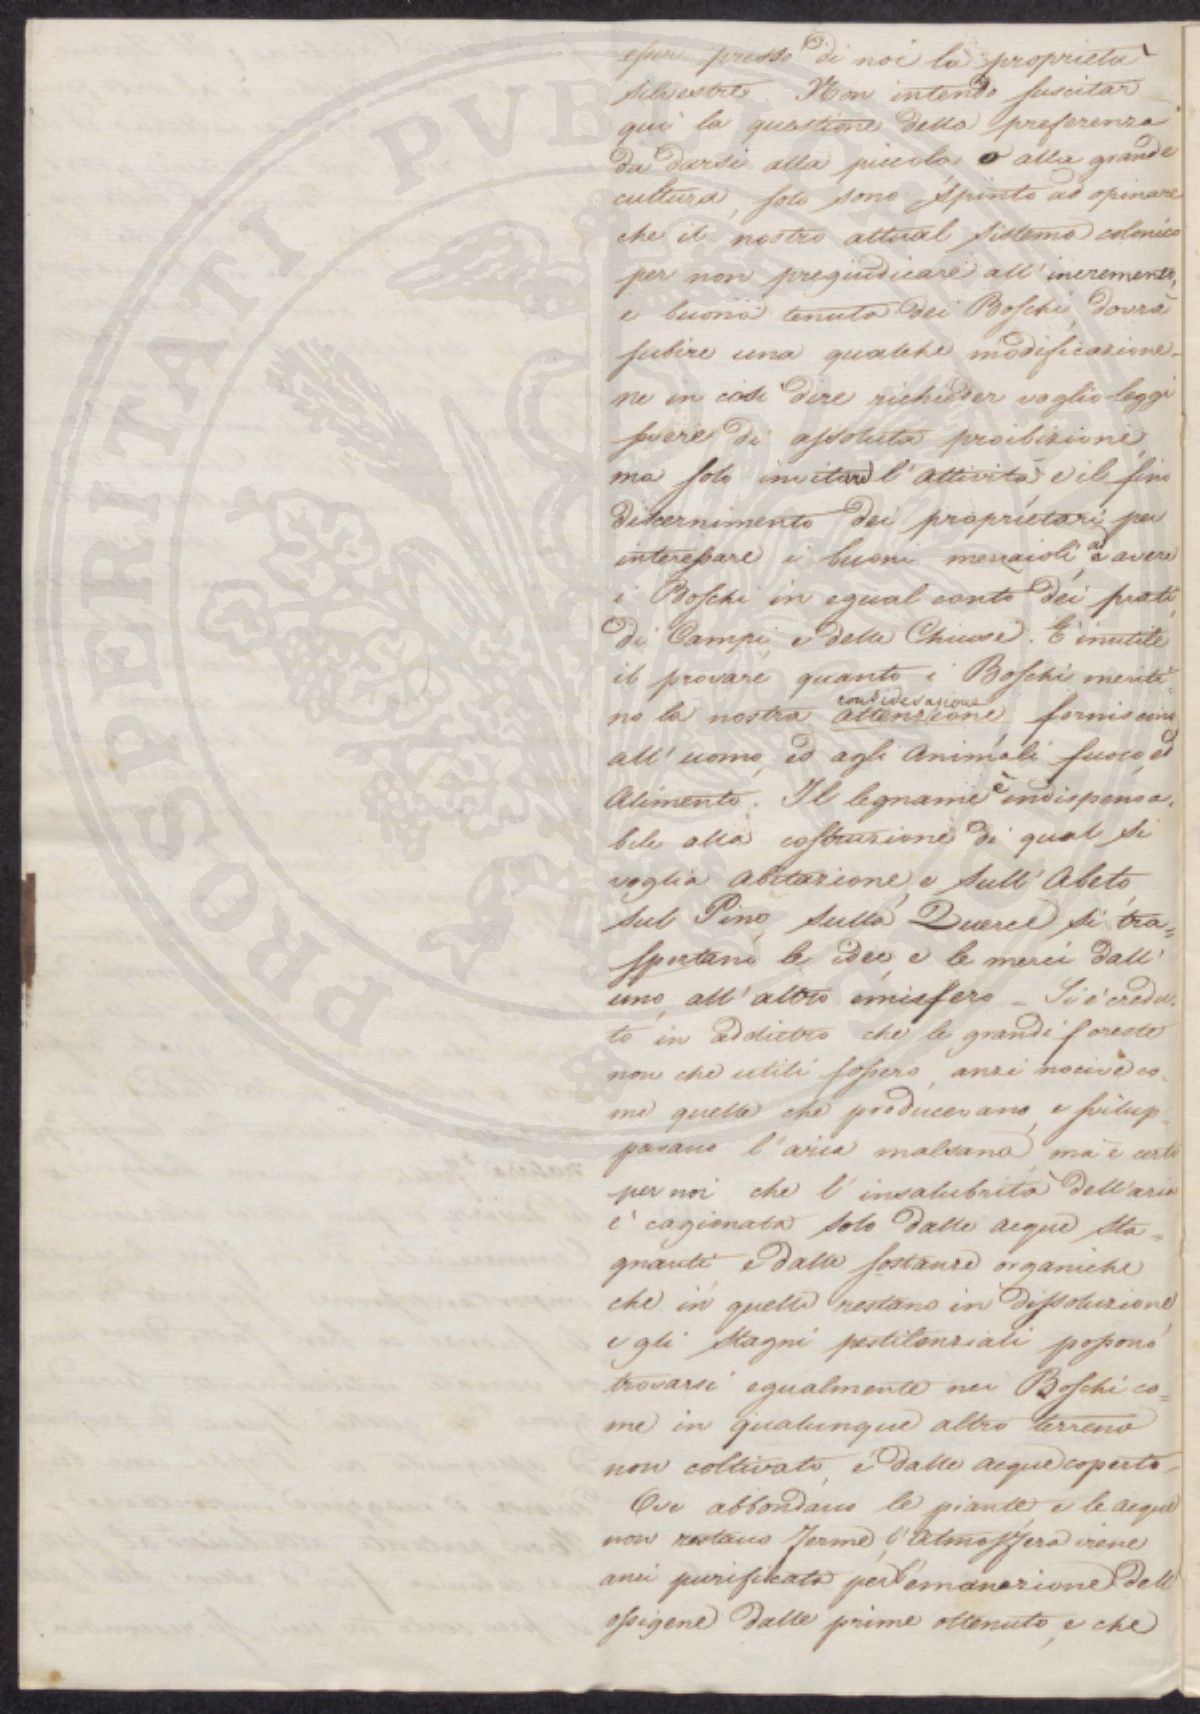 esser presso di noi la proprietà
silvestre. Non intendo suscitar
qui la questione della preferenza
da darsi alla piccola o alla grande
cultura, solo sono spinto ad opinare
che il nostro attual sistema colonico
per non pregiudicare all'incremento,
e buona tenuta dei Boschi, dovrà
subire una qualche modificazione_
ne in così dire richieder voglio leggi
severe di assoluta proibizione,
ma solo invitare l'attività, e il fino
discernimento dei proprietari per
interessare i buoni mezzaioli a avere
i Boschi in egual conto dei prati,
di Campi, e delle Chiuse. È inutile
il provare quanto i Boschi meriti
considerazione
no la nostra attenzione, forniscono
all'uomo, ed agli animali fuoco, ed
Alimento. Il legname è indispensa=
bile alla costruzione di qual si
voglia abitazione, e sull'Abeto,
sul Pino sulla Querce si tra=
sportano le idee, e le merci dall'
uno, all'altro emisfero _ Si è credu=
to in addietro che le grandi foreste
non che utili fossero, anzi nocive co=
me quelle che producevano, e svilup=
pavano l'aria malsana, ma è certo
per noi che l'insalubrità dell'aria
è cagionata solo dalle acque sta=
gnanti e dalle sostanze organiche
che in quelle restano in dissoluzione,
e gli stagni pestilenziali possono
trovarsi egualmente nei Boschi co=
me in qualunque altro terreno
non coltivato, e dalle acque coperto_
Ove abbondano le piante, e le acque
non restano ferme, l'atmosfera viene
anzi purificata per l'emanazione dell'
ossigene dalle prime ottenuto, e che
PROSPERITATI PUBL